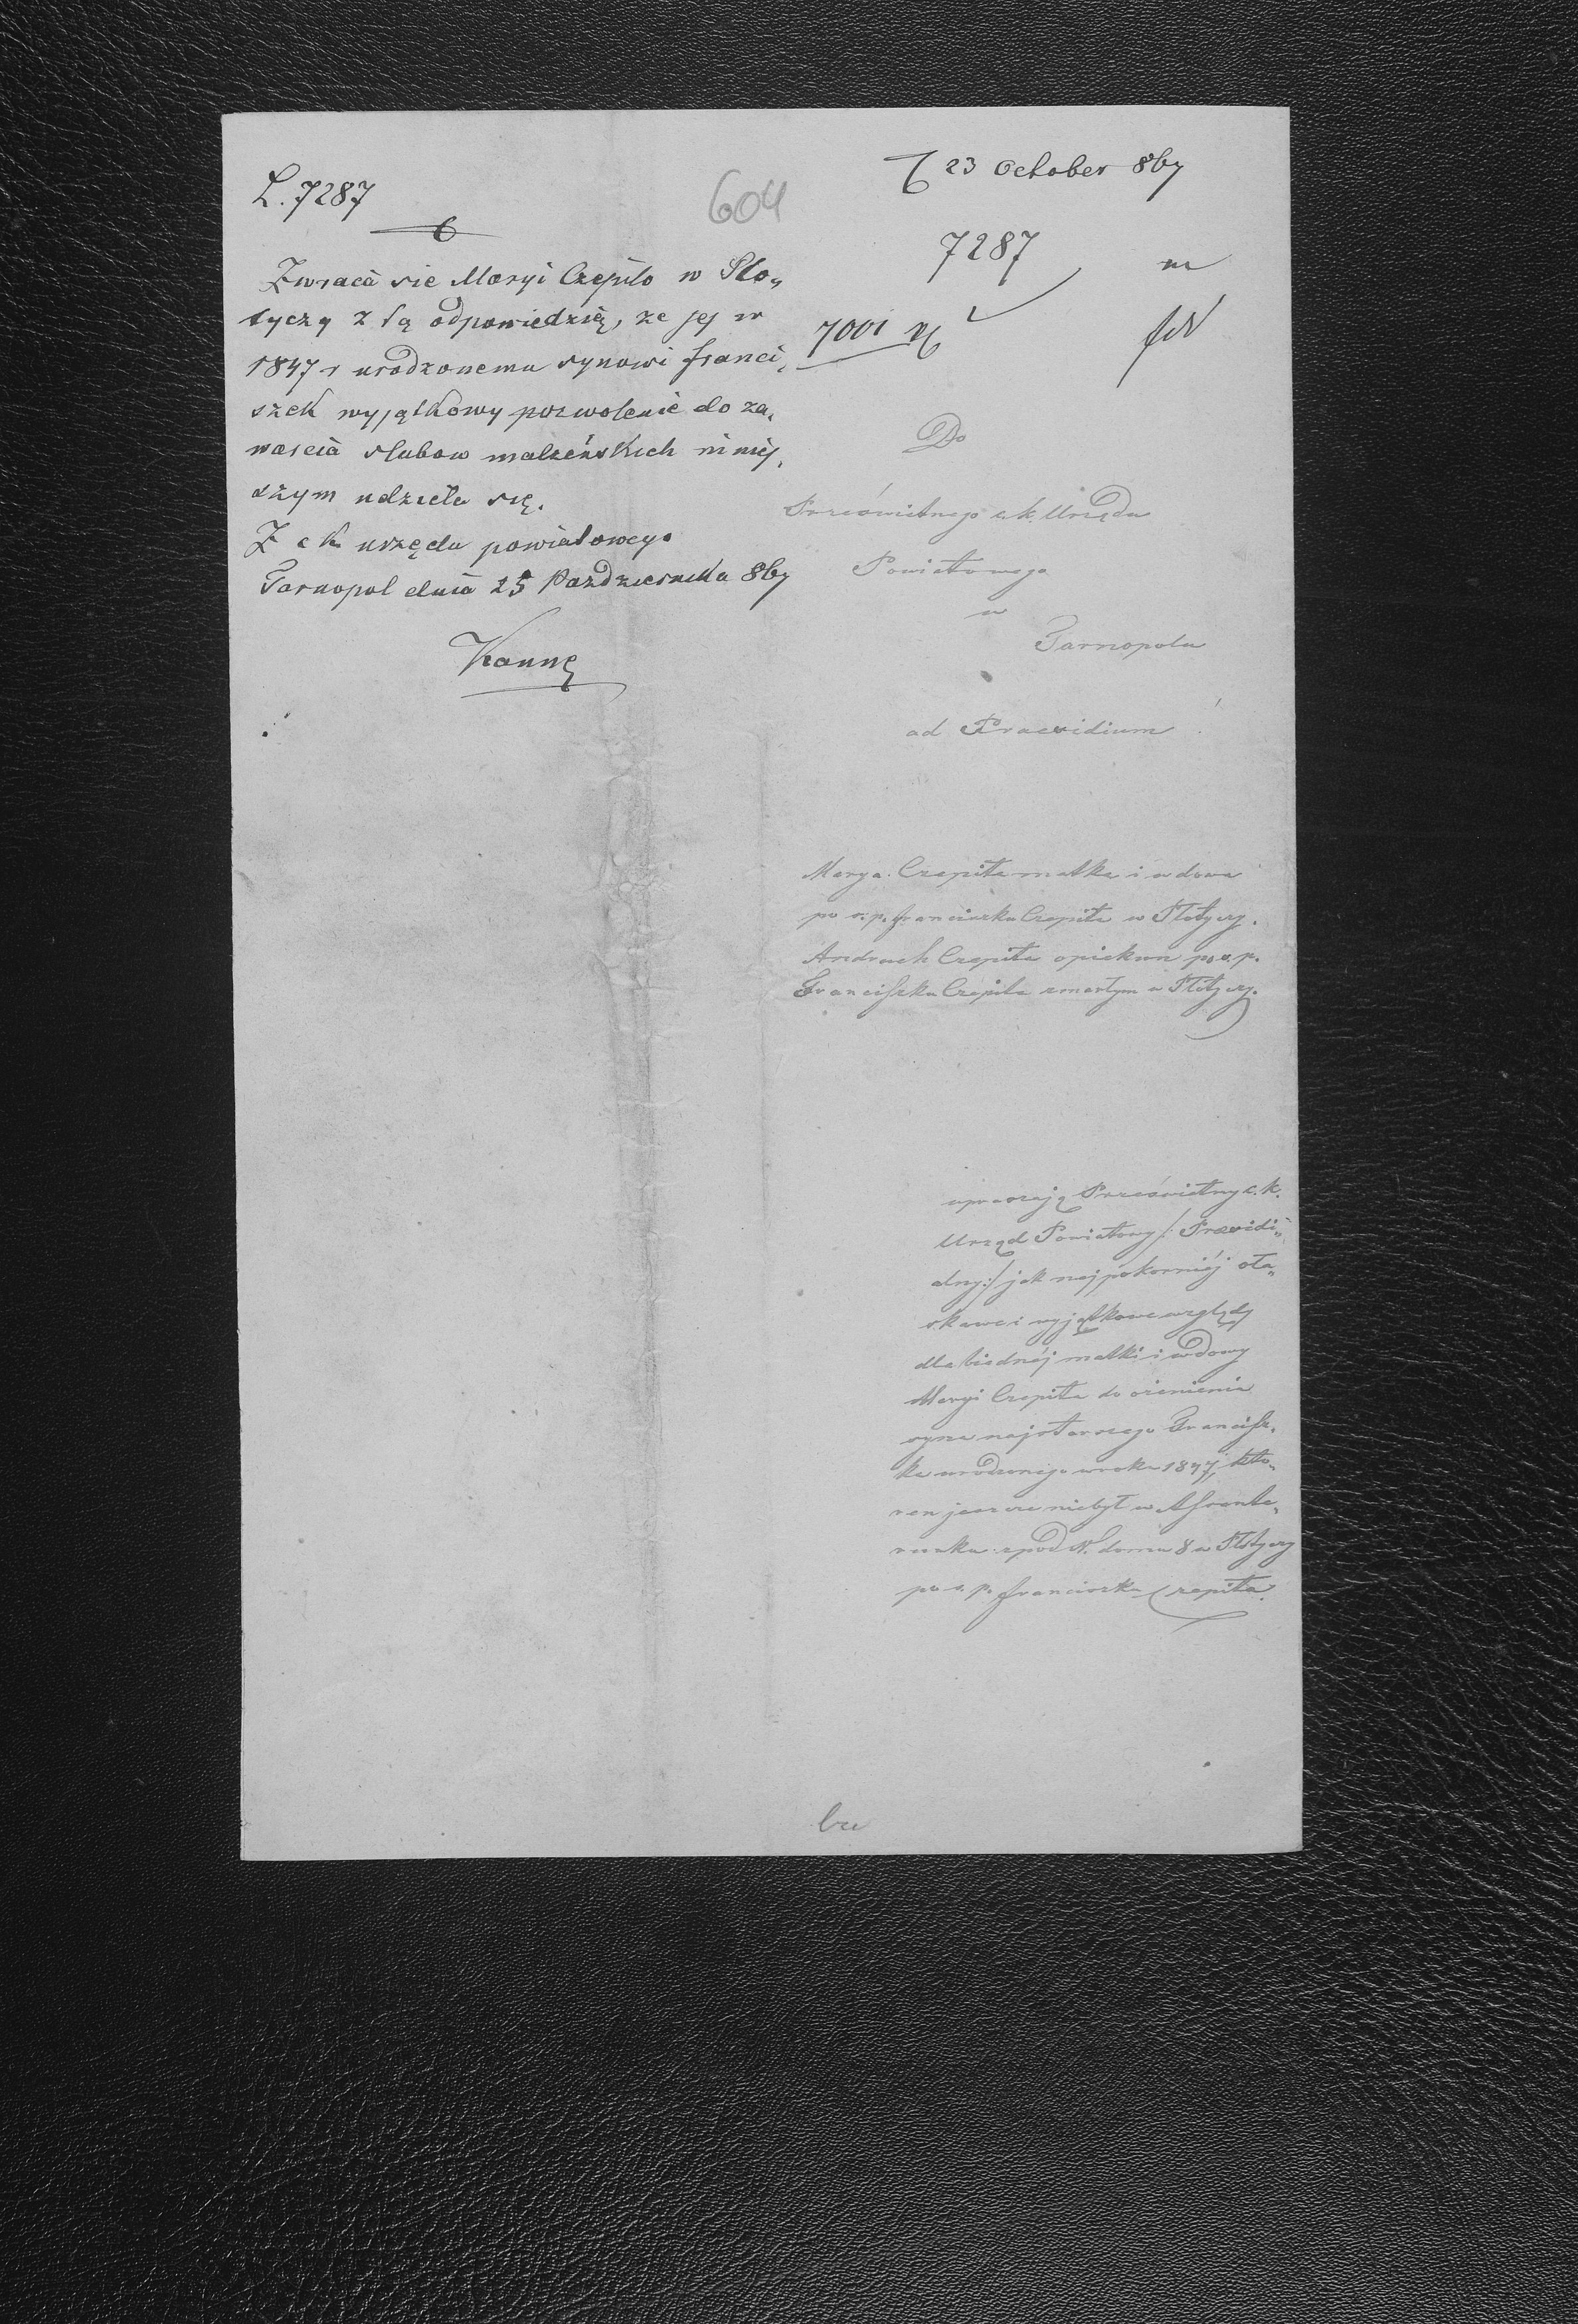 L. 7287
Zwraca sie Maryi Czepiło w Pło„
tyczy z tą odpowiedzią, ze jej w
1847 r urodzonemu synowi franci„
szek wyjątkowy pozwolenie do za„
warcia slubow malzeńskich niniej„
szym udziela się.
Z c k urzędu powiatowego
Tarnopol dnia 25 Pazdziernika 867
604
23 October 867
7287
7001
Do
Prześwietnego c. k. Urzędu
Powiatowego
w
Tarnopolu
ad Praesidium
Marya Czepiła matka i wdowa
po s. p. franciszku Czepiła w Płotyczy.
Andruch Czepiła opiekun po s. p.
Franciszku Czepiła zmarłym w Płotyczy.
upraszają Prześwietny c. k.
Urząd Powiatowy /: Prezidi„
alny :/ jak najpokorniéj o ła„
skawe i wyjątkowe względy
dla biednéj matki i wdowy
Maryi Czepiła do ożenienia
syna najstarszego Francisz„
ka urodzonego w roku 1847, któ„
ren jeszcze niebył w Assente„
runku z pod N. domu 8 w Płotyczy
po s. p. franciszku Czepiła.